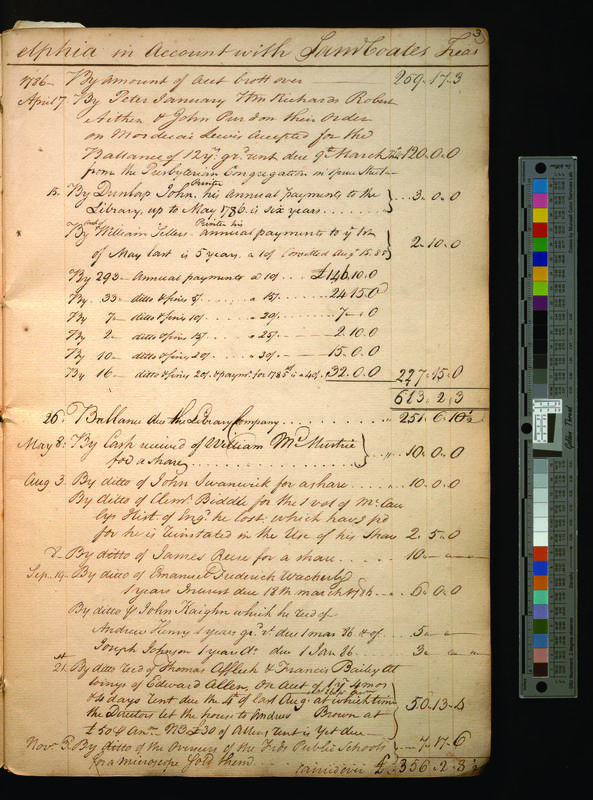 3
elphia in Account with Saml Coates Treas
1786 By amount of Acct brott over 259.17.3
April 7. By Peter January Wm Richards Robert
Aitken & John Purdon their Order
on Mordecai Lewis Accepted for the
Ballance of 12 yrs grd rent due 9th March 120.0.0
from the Presbyterian Congregation in Spruce Street
15. By Dunlap John, Printer his Annual payments to the
Library, up to May 1786 is Six years 3.0.0
By William Sellers Printer his annual payments to ye 1st
of May last is 5 years, a 10/ 2.10.0
By 293 Annual payments a 10/ £146.10.0
By 33 ditto & fines 5/ a 15/ 24.15.0
By 7 ditto & fines 10/ a 20/ 7 0
By 2 ditto & fines 15/ a 25/ 2.10.0
By 10 ditto & fines 20/ a 30/ 15.0.0
By 16 ditto & fines 20/ & paymt for 1785 is a 40/ 32.0.0 227.15.0
613.2.3
26. Ballance due the Library Company 251.6.10½
May 8. By Cash received of William Mc
for a share 10.0.0
Aug 3. By ditto of John Swanwick for a share 10.0.0
By ditto of Clemt Biddle for the 1 vol of Mc Cau
lys Hist. of Engd he lost, which havg pd
for he is Reinstated in the Use of his Share 2.5.0
8. By ditto of James Reese for a share 10
Sep. 19. By ditto of Emanuel Dederich
1 years Interest due 18th march 1786 6.0.0
By ditto of John Kaighn which he recd of
Andrew Henry 1 years grd rt due 1 mar 86 & of 5
Joseph Johnson 1 year do due 1 Jan 86 3
21. By ditto recd of Thomas Affleck & Francis Bailey Att
orneys of Edward Allen, on Acct of 1 yr 4 mos
& 4 days rent due the 4th of last Augt at which time
the Directors let the house to Andrew Brown at 50.13.4
£50 P Ann. NB £30 of Allens rent is yet due
Novr 3. By ditto of the Overseers of the Frds Public Schools 7.17.6
for a microscope sold them
carried over £356.2.8½